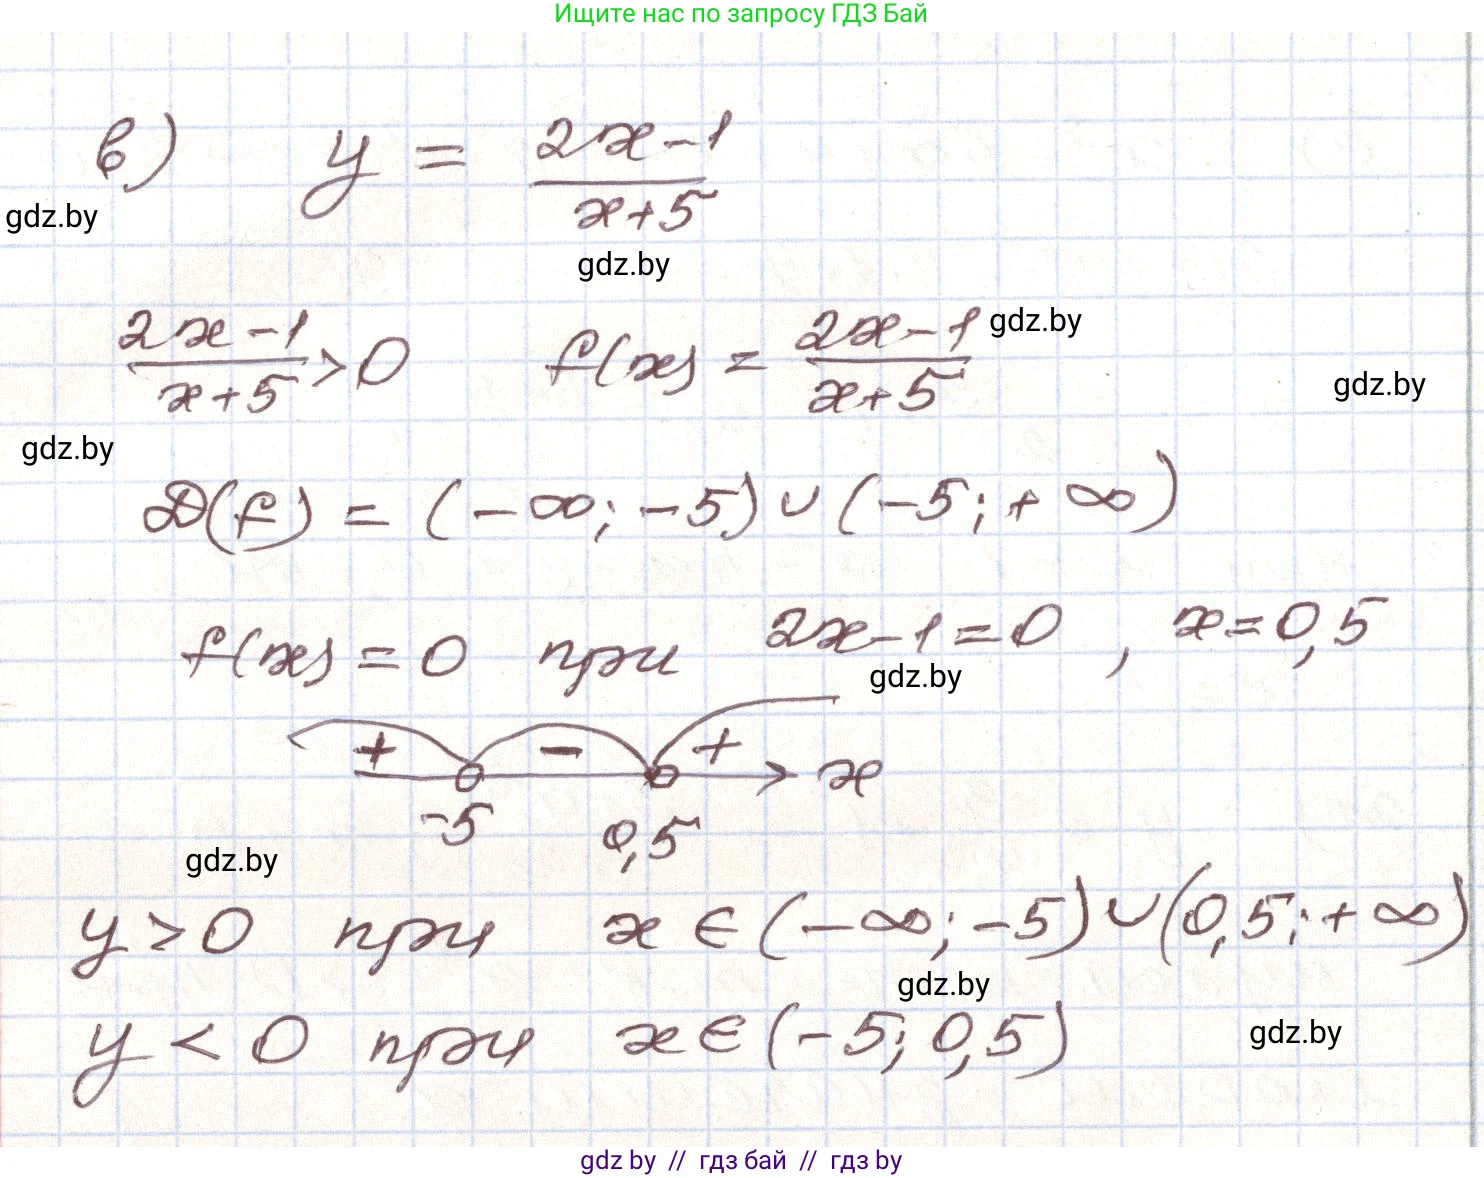 Ищите нас по запросу ГДЗ Бай
в) y = (2x-1)/(x+5)
gdz.by
gdz.by
(2x-1)/(x+5) > 0 f(x) = (2x-1)/(x+5) gdz.by
gdz.by
gdz.by
D(f) = (-∞; -5) ∪ (-5; +∞)
f(x) = 0 при 2x-1=0, x=0,5
gdz.by
+ - + x
-5 0,5
gdz.by
y > 0 при x ∈ (-∞; -5) ∪ (0,5; +∞)
gdz.by
y < 0 при x ∈ (-5; 0,5)
gdz.by
gdz by // гдз бай // гдз by